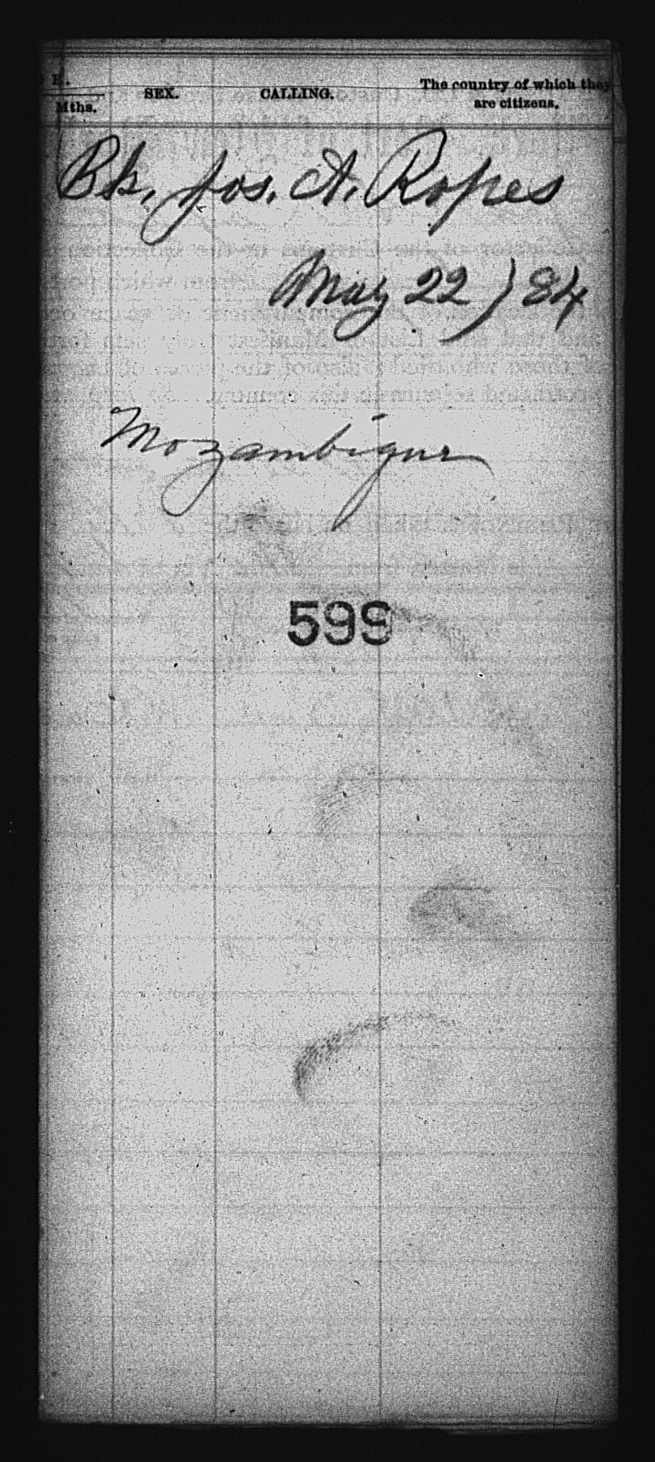 Mths.
SEX.
CALLING.
The country of which they
are citizens.
Bk. Jos. A. Ropes
May 22 / 84
Mozambique
599